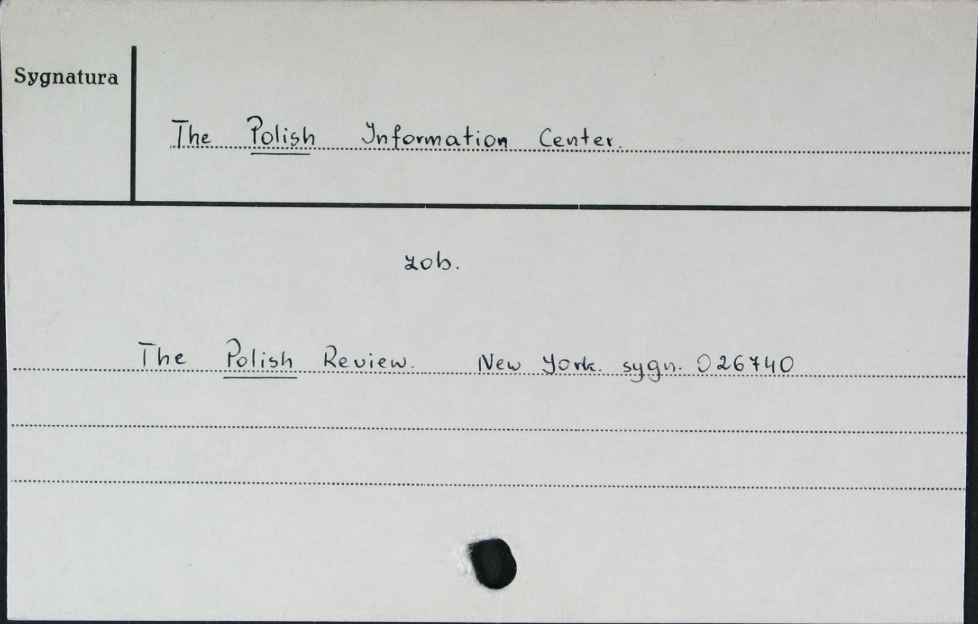 Sygnatura
The Polish Information Center.
zob.
The Polish Review. New York. sygn. 026740